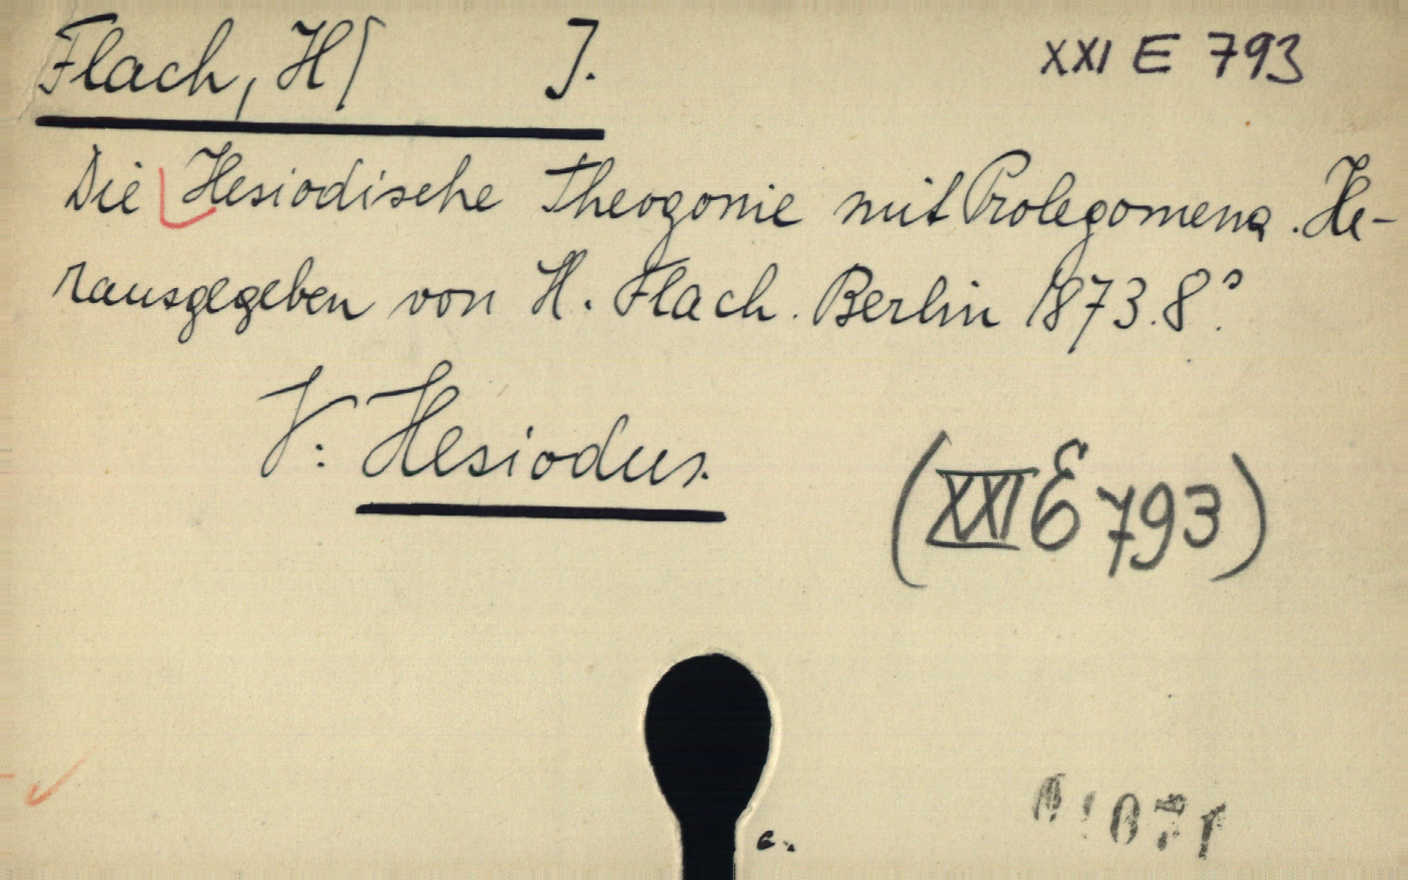 Flach, H[ J. XXI E 793
Die Hesiodische Theogonie mit Prolegomena. He-
rausgegeben von H. Flach. Berlin 1873. 8°.
V: Hesiodus.
(XXI E 793)
c.